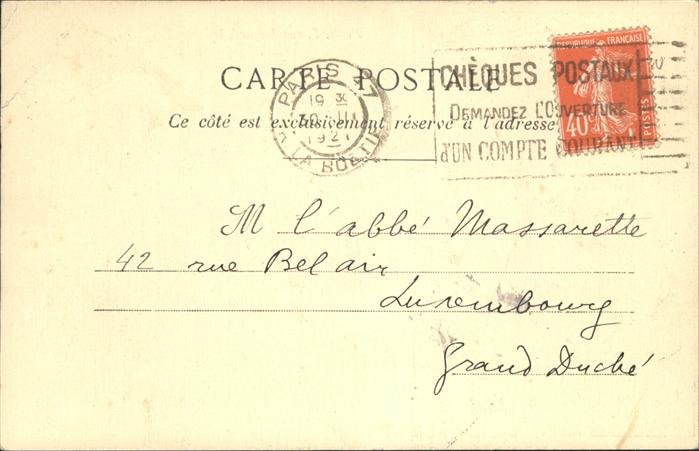 RÉPUBLIQUE FRANÇAISE
CARTE POSTALE
CHÈQUES POSTAUX
DEMANDEZ L'OUVERTURE
D'UN COMPTE COURANT
40c
POSTES
PARIS 47
19 30
III
1927
R. LA BOÉTIE
Ce côté est exclusivement réservé à l'adresse
M l'abbé Massarette
42 rue Bel air
Luxembourg
Grand Duché